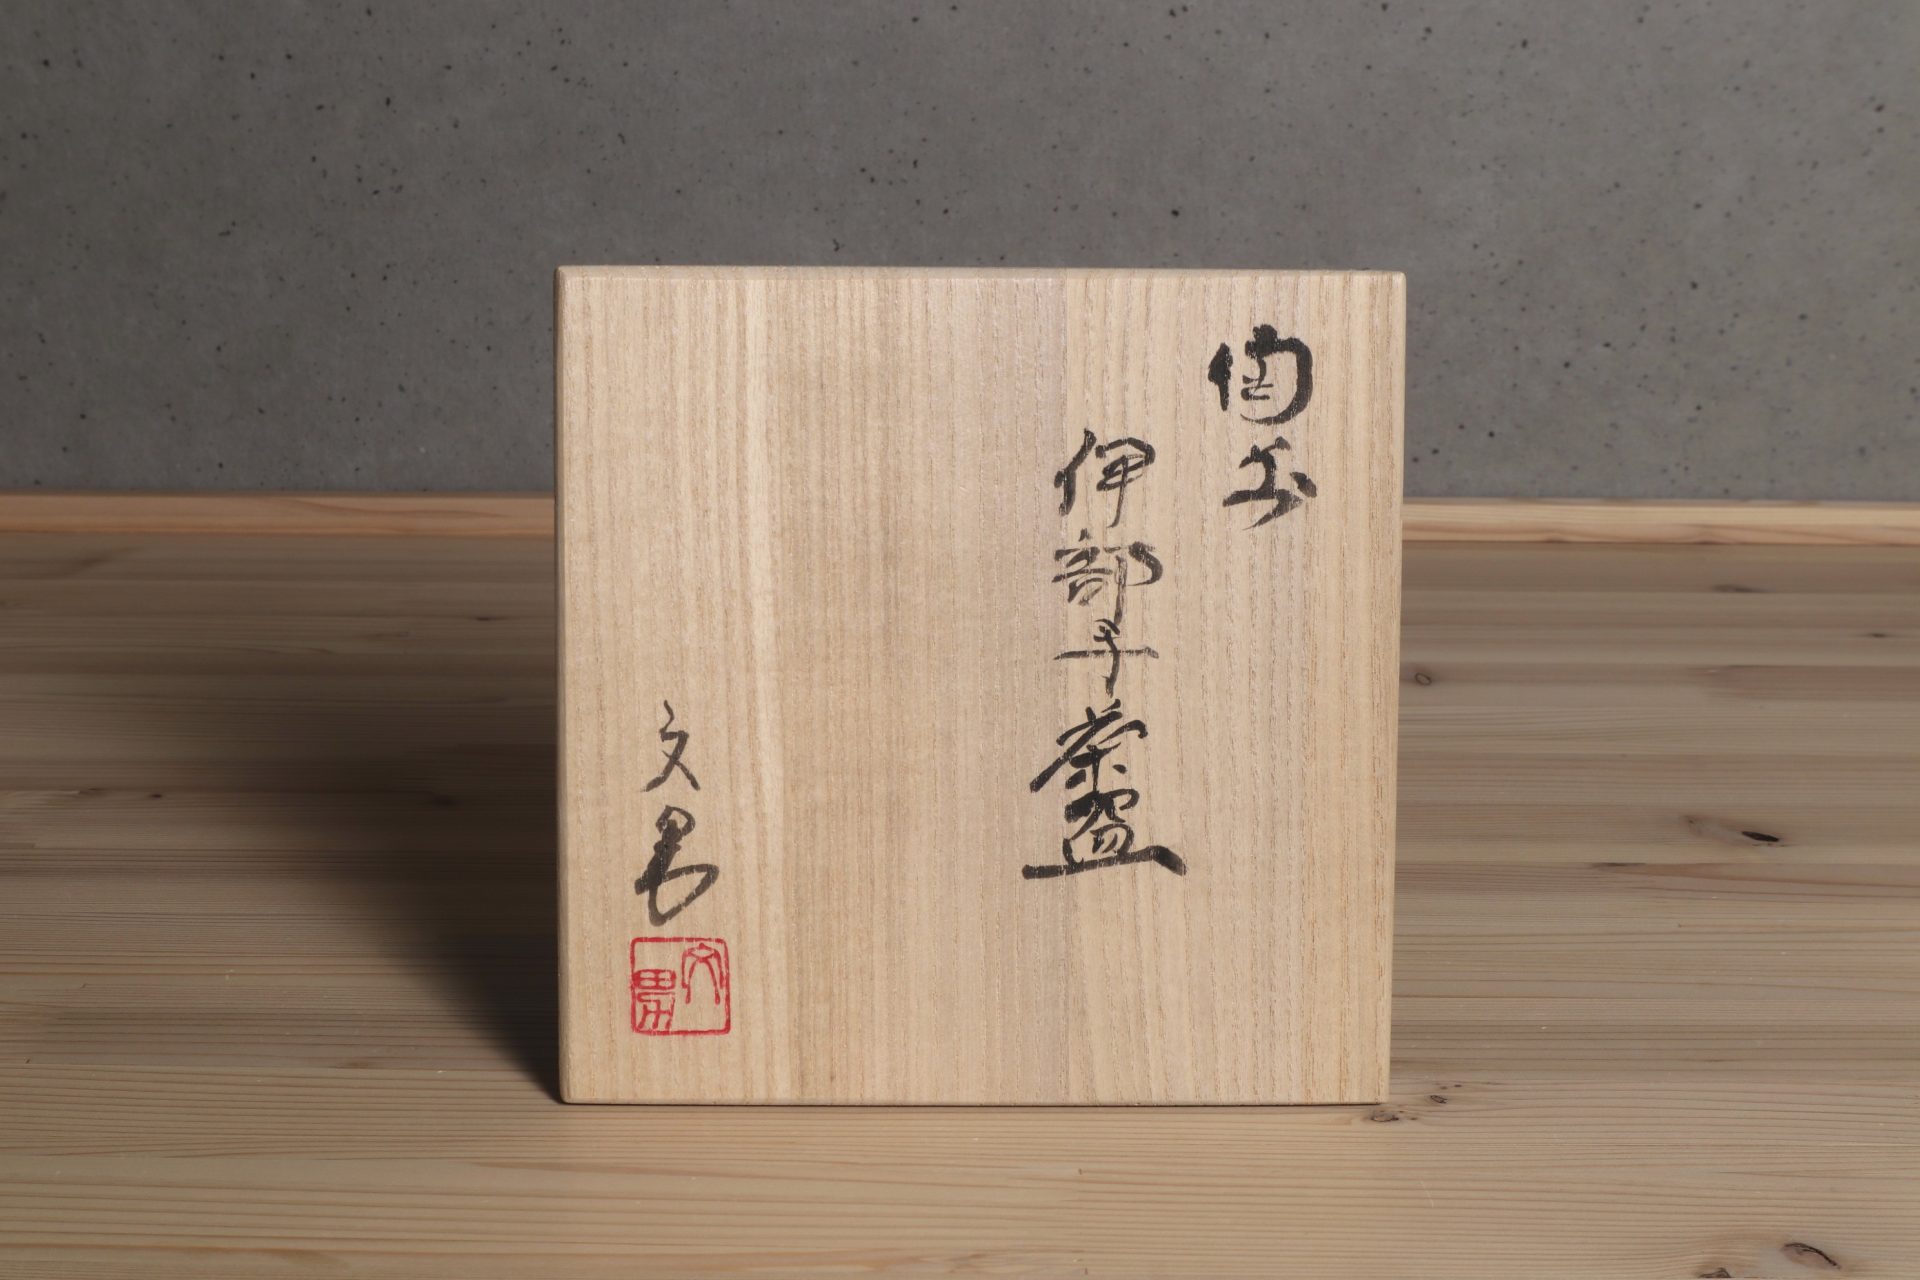 備前
伊部手茶盌
文男
文男